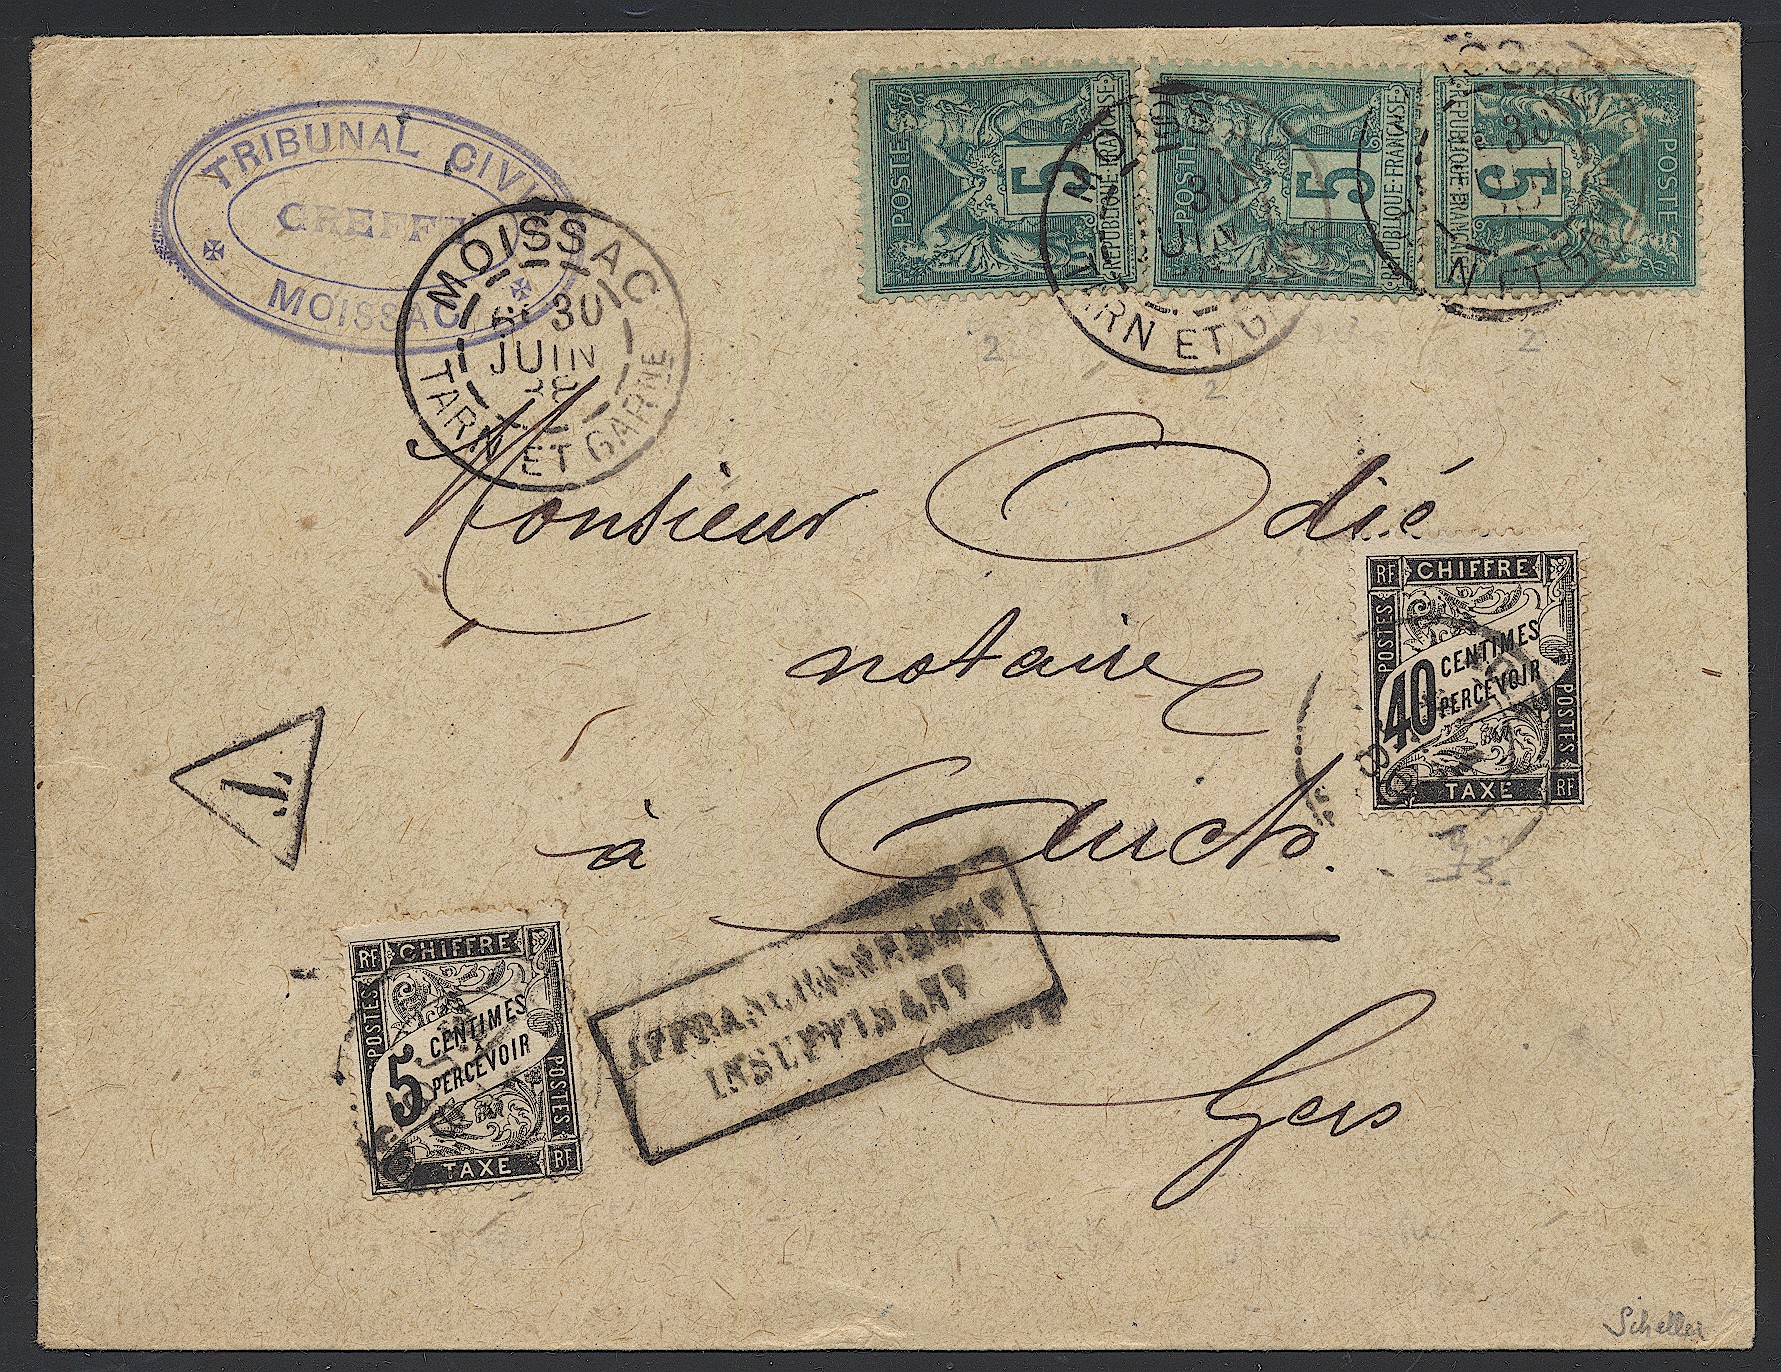 TRIBUNAL CIVIL
GREFFE
MOISSAC
MOISSAC
30
JUIN
TARN ET GARNE
POSTE
5
REPUBLIQUE FRANÇAISE
POSTE
5
REPUBLIQUE FRANÇAISE
POSTE
5
REPUBLIQUE FRANÇAISE
MOISSAC
30
JUIN
TARN ET GARNE
30
N ET GARNE
2
2
2
Monsieur Odié
notaire
à Auch.
Gers
RF CHIFFRE
POSTES
40 CENTIMES
À
PERCEVOIR
POSTES
TAXE RF
T
RF CHIFFRE
POSTES
5 CENTIMES
À
PERCEVOIR
POSTES
TAXE RF
AFFRANCHISSEMENT
INSUFFISANT
Scheller